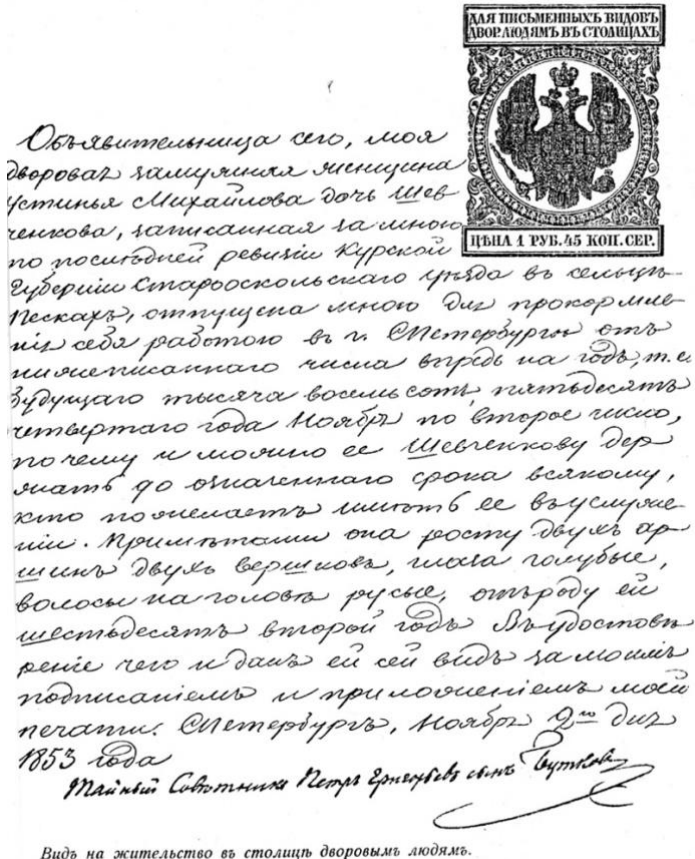 ДЛЯ ПИСЬМЕННЫХЪ ВИДОВЪ
ДВОР. ЛЮДЯМЪ ВЪ СТОЛИЦАХЪ
ЦѢНА 1 РУБ. 45 КОП. СЕР.
Объявительница сего, моя
дворовая замужняя женщина
Устинья Михайлова дочь Шев-
ченкова, записанная за мною
по послѣдней ревизіи Курской
Губерніи Старооскольскаго уѣзда въ сельцѣ
Пескахъ, отпущена мною для прокормле-
нія себя работою въ г. СПетербургѣ отъ
нижеписаннаго числа впредь на годъ, т. е.
будущаго тысяча восемьсотъ пятьдесятъ
четвертаго года Ноября по второе число,
почему и можно ее Шевченкову дер
жать до означеннаго срока всякому,
кто пожелаетъ имѣть ее въ услуже-
ніи. Примѣтами она росту двухъ ар-
шинъ двухъ вершковъ, глаза голубые,
волосы на головѣ русые, отъ роду ей
шестьдесятъ второй годъ. Въ удостовѣ
реніе чего и данъ ей сей видъ за моимъ
подписаніемъ и приложеніемъ моей
печати. СПетербургъ, Ноября 2го дня
1853 года
Тайный Совѣтникъ Петръ сынъ Бутковъ
Видъ на жительство въ столицѣ дворовымъ людямъ.